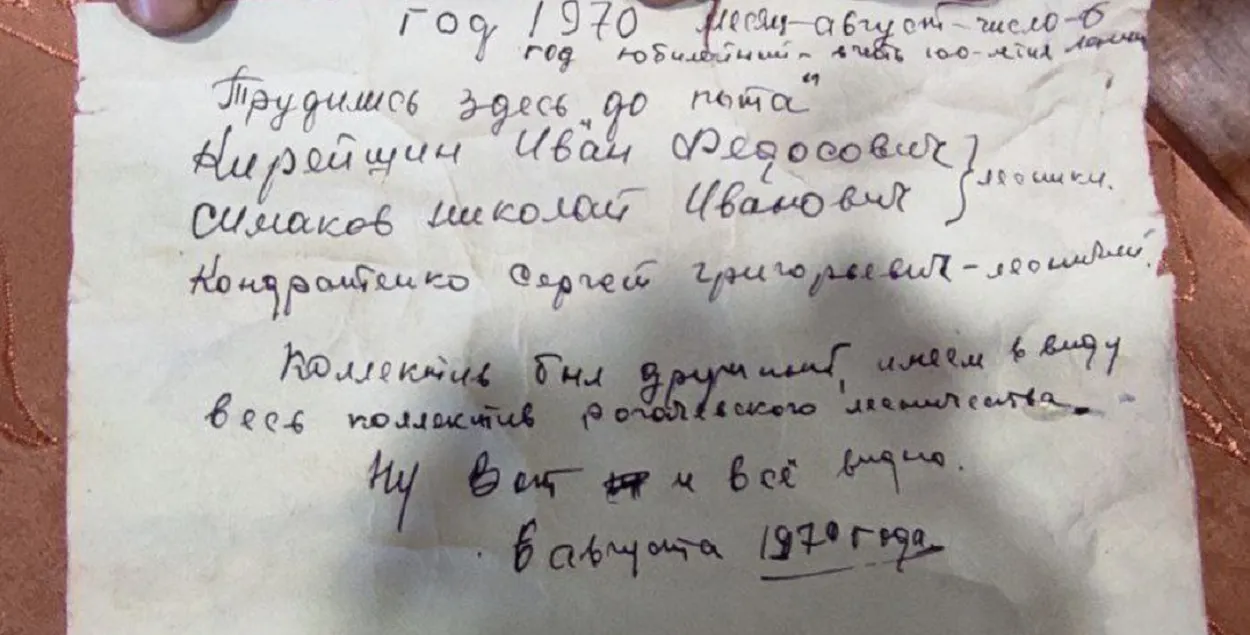 год 1970 месяц-август-число-6
год юбилейный - в честь 100-летия Ленина
Трудились здесь „до пыта"
Кирейшин Иван Федосович } лесники.
Симаков Николай Иванович
Кондратенко Сергей Григорьевич - лесничий.
Коллектив был дружный, имеем в виду
весь коллектив Рогачевского лесничества.
Ну вот и всё видно.
6 августа 1970 года